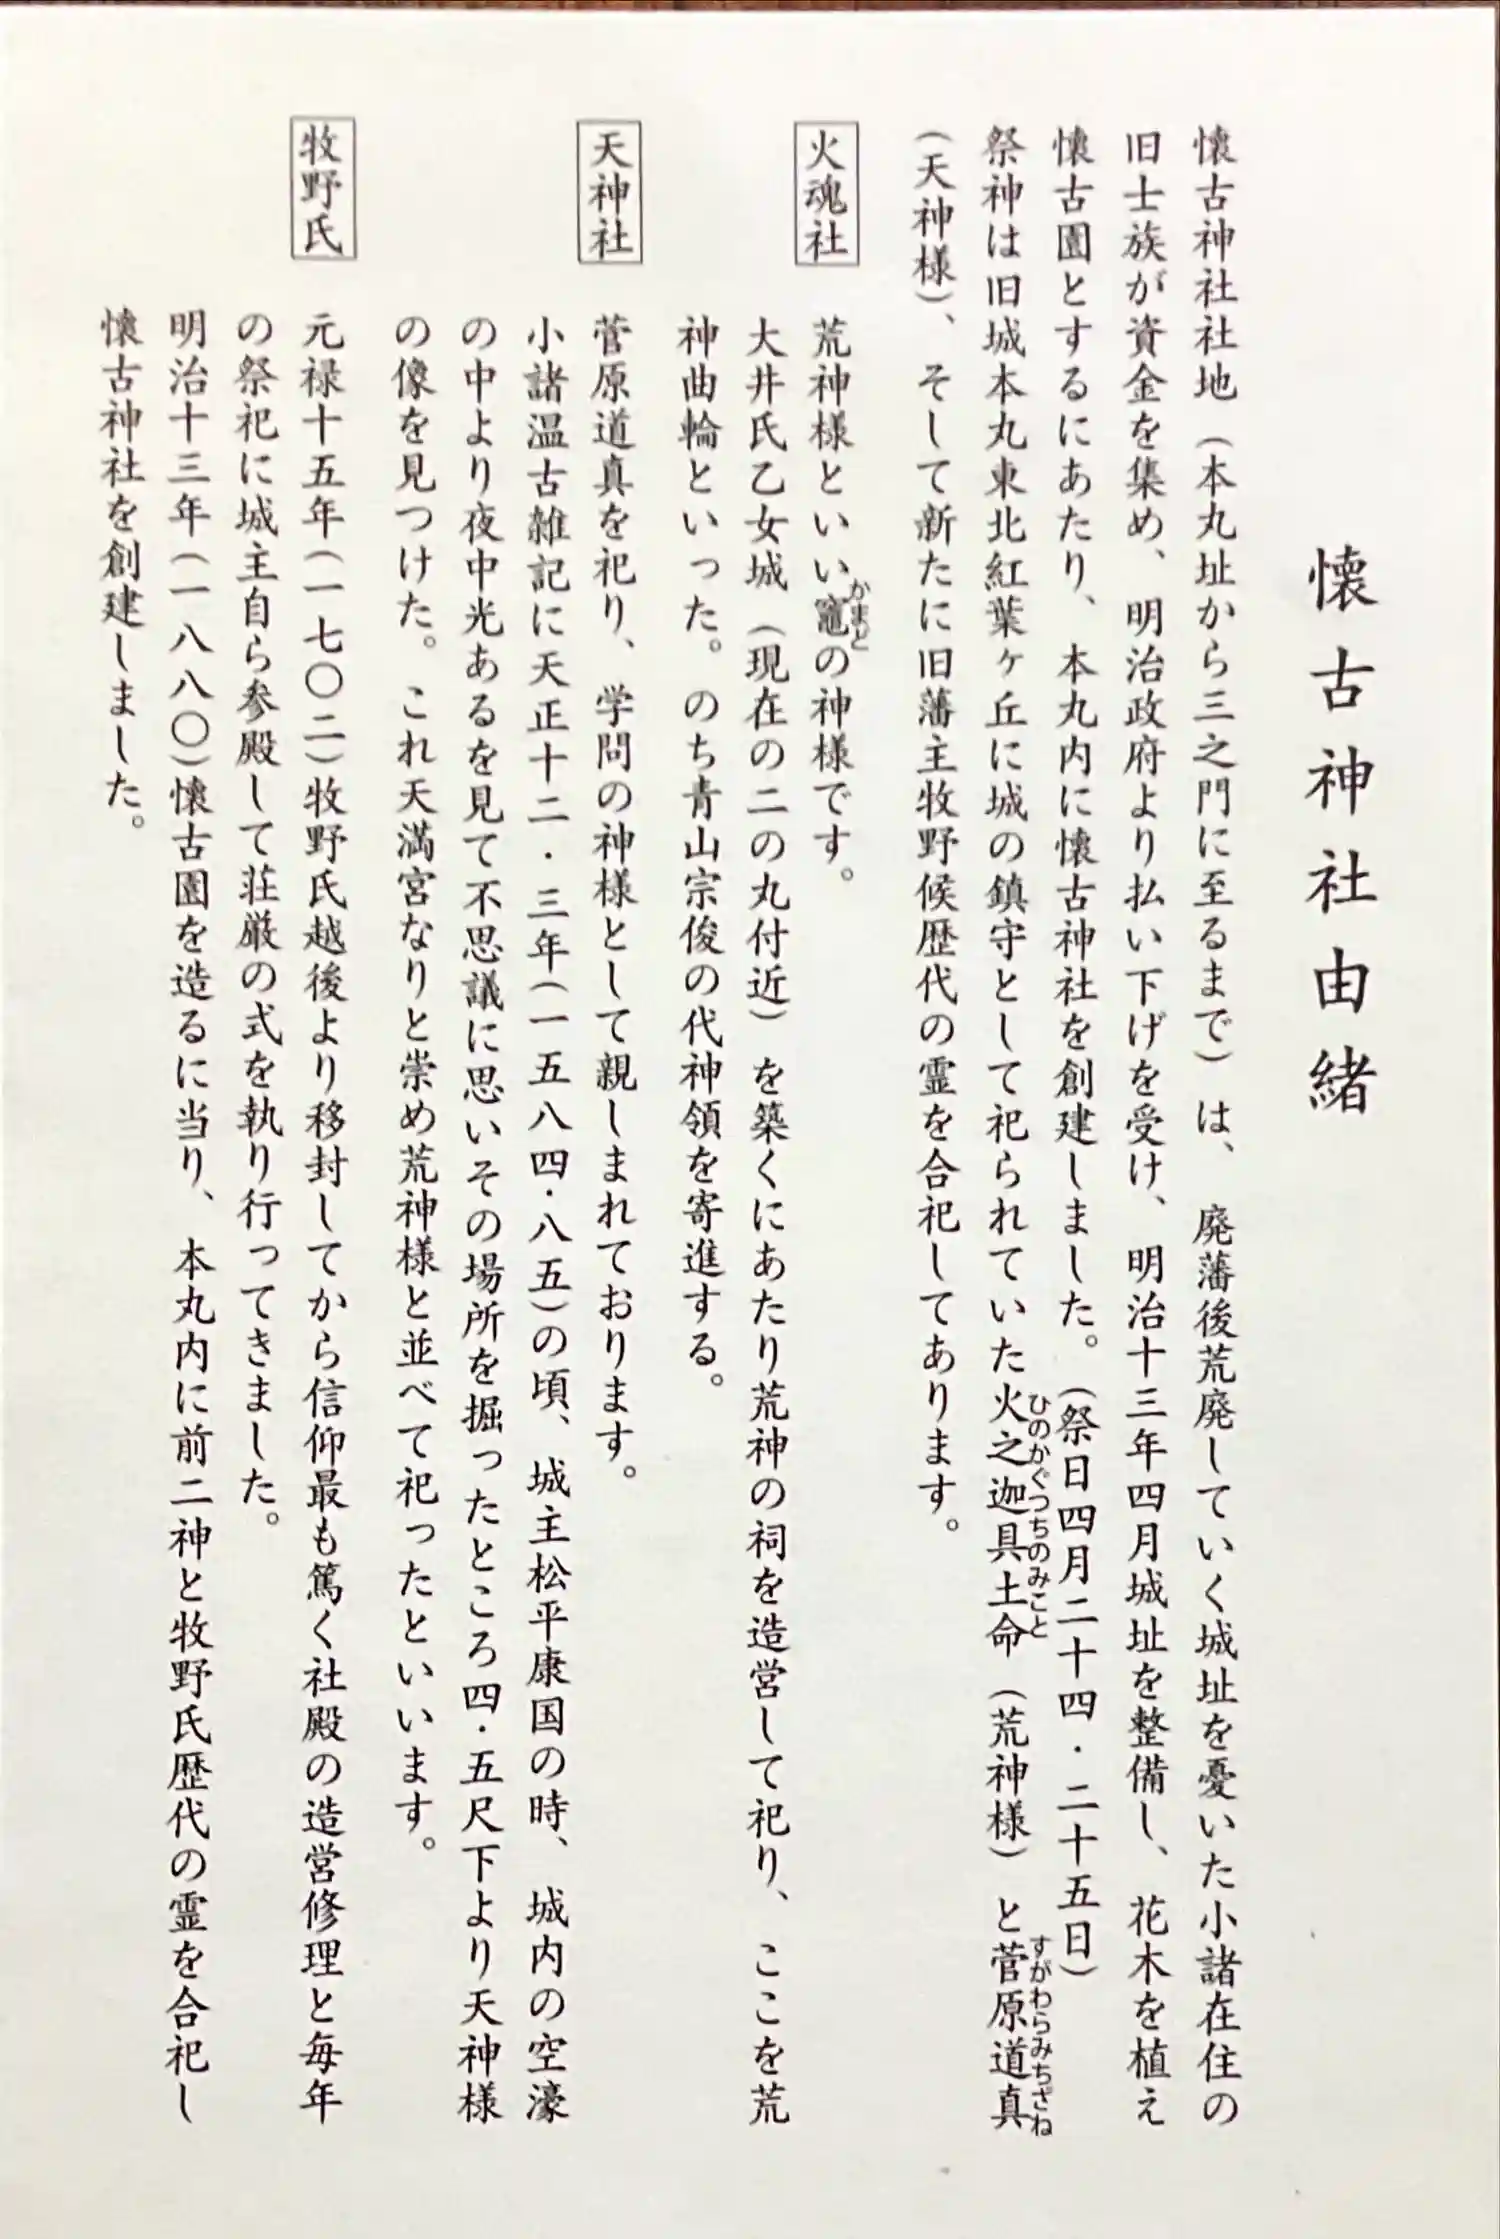 懐古神社由緒
懐古神社社地（本丸址から三之門に至るまで）は、廃藩後荒廃していく城址を憂いた小諸在住の
旧士族が資金を集め、明治政府より払い下げを受け、明治十三年四月城址を整備し、花木を植え
懐古園とするにあたり、本丸内に懐古神社を創建しました。（祭日四月二十四・二十五日）
祭神は旧城本丸東北紅葉ヶ丘に城の鎮守として祀られていた火之迦具土命（荒神様）と菅原道真
ひのかぐつちのみこと
すがわらみちざね
（天神様）、そして新たに旧藩主牧野候歴代の霊を合祀してあります。
火魂社
荒神様といい竈の神様です。
かまど
大井氏乙女城（現在の二の丸付近）を築くにあたり荒神の祠を造営して祀り、ここを荒
神曲輪といった。のち青山宗俊の代神領を寄進する。
天神社
菅原道真を祀り、学問の神様として親しまれております。
小諸温古雑記に天正十二・三年（一五八四・八五）の頃、城主松平康国の時、城内の空濠
の中より夜中光あるを見て不思議に思いその場所を掘ったところ四・五尺下より天神様
の像を見つけた。これ天満宮なりと崇め荒神様と並べて祀ったといいます。
牧野氏
元禄十五年（一七〇二）牧野氏越後より移封してから信仰最も篤く社殿の造営修理と毎年
の祭祀に城主自ら参殿して荘厳の式を執り行ってきました。
明治十三年（一八八〇）懐古園を造るに当り、本丸内に前二神と牧野氏歴代の霊を合祀し
懐古神社を創建しました。